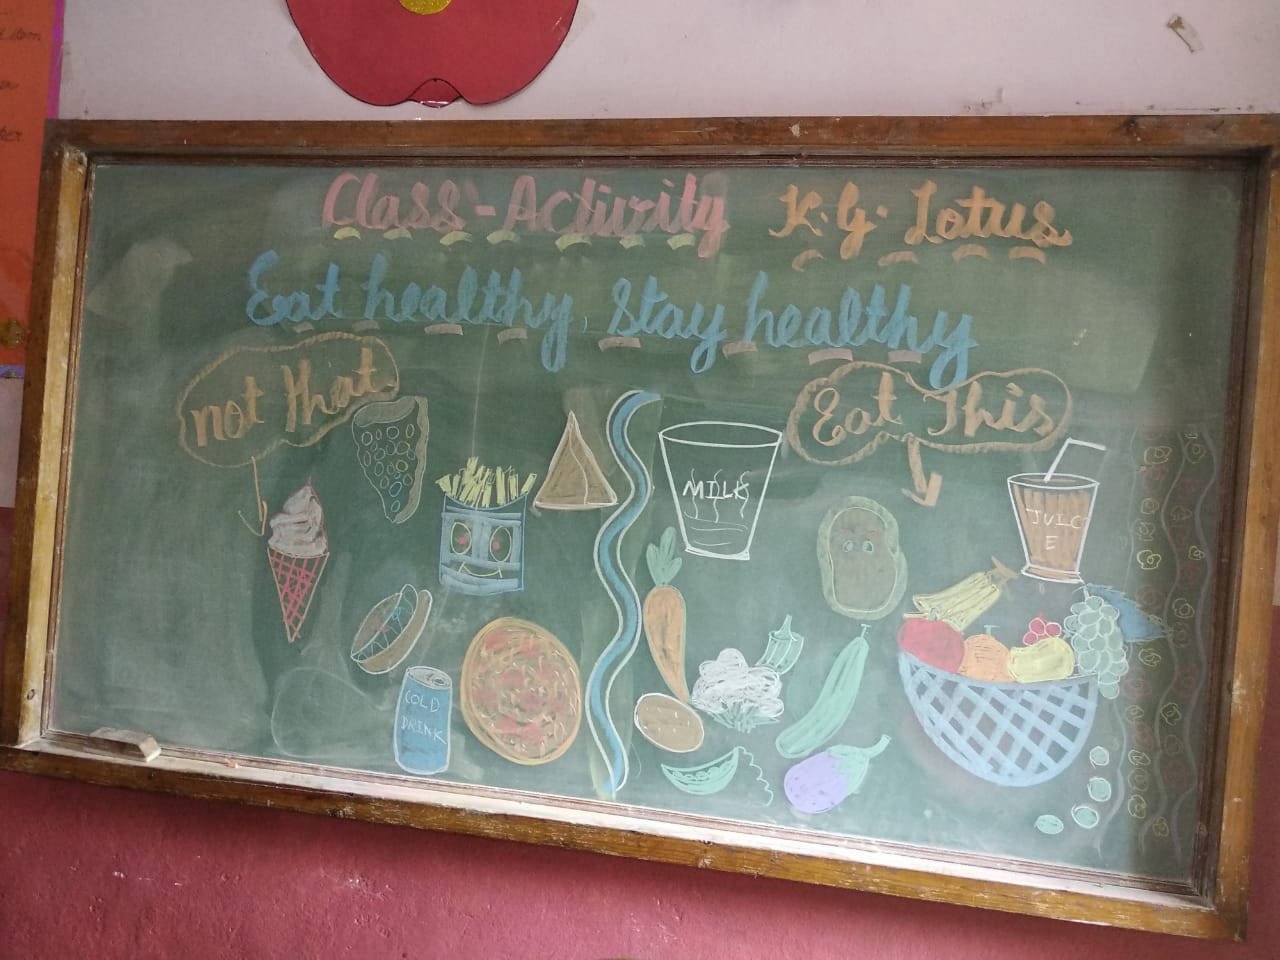 Class-Activity K.G. Lotus
Eat healthy, Stay healthy
not that
Eat This
MILK
JUIC
E
COLD
DRINK